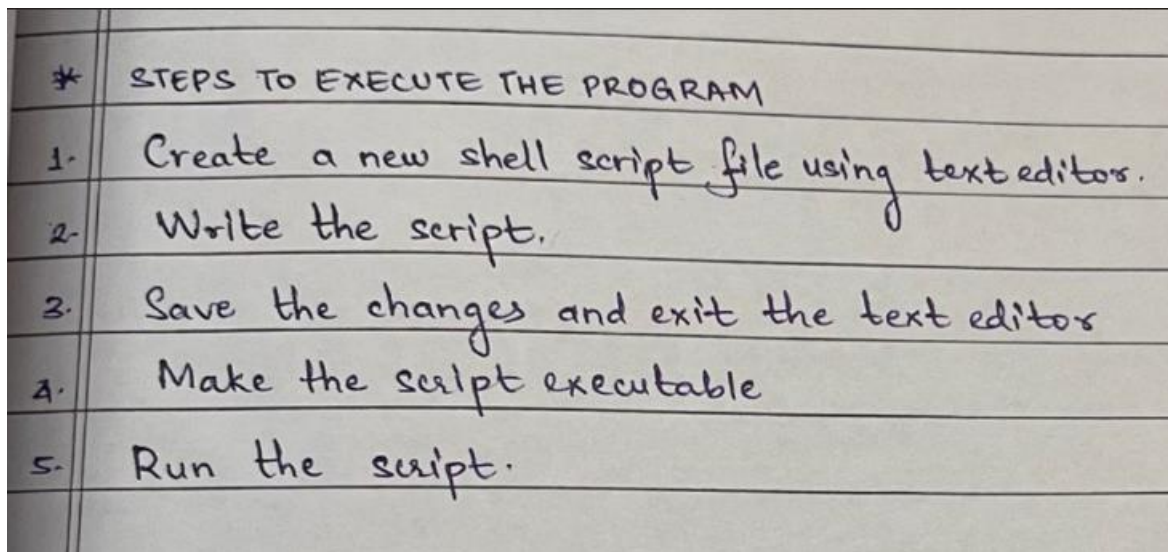 * STEPS TO EXECUTE THE PROGRAM
1. Create a new shell script file using text editor.
2. Write the script.
3. Save the changes and exit the text editor
4. Make the script executable
5. Run the script.